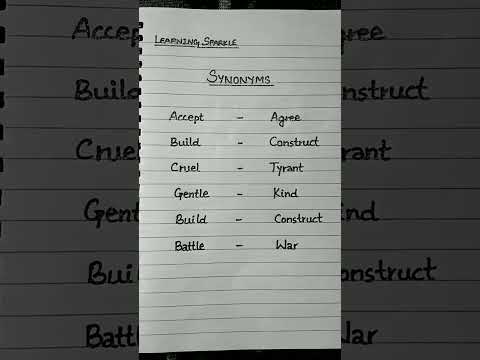 LEARNING SPARKLE
SYNONYMS
Accept - Agree
Build - Construct
Cruel - Tyrant
Gentle - Kind
Build - Construct
Battle - War